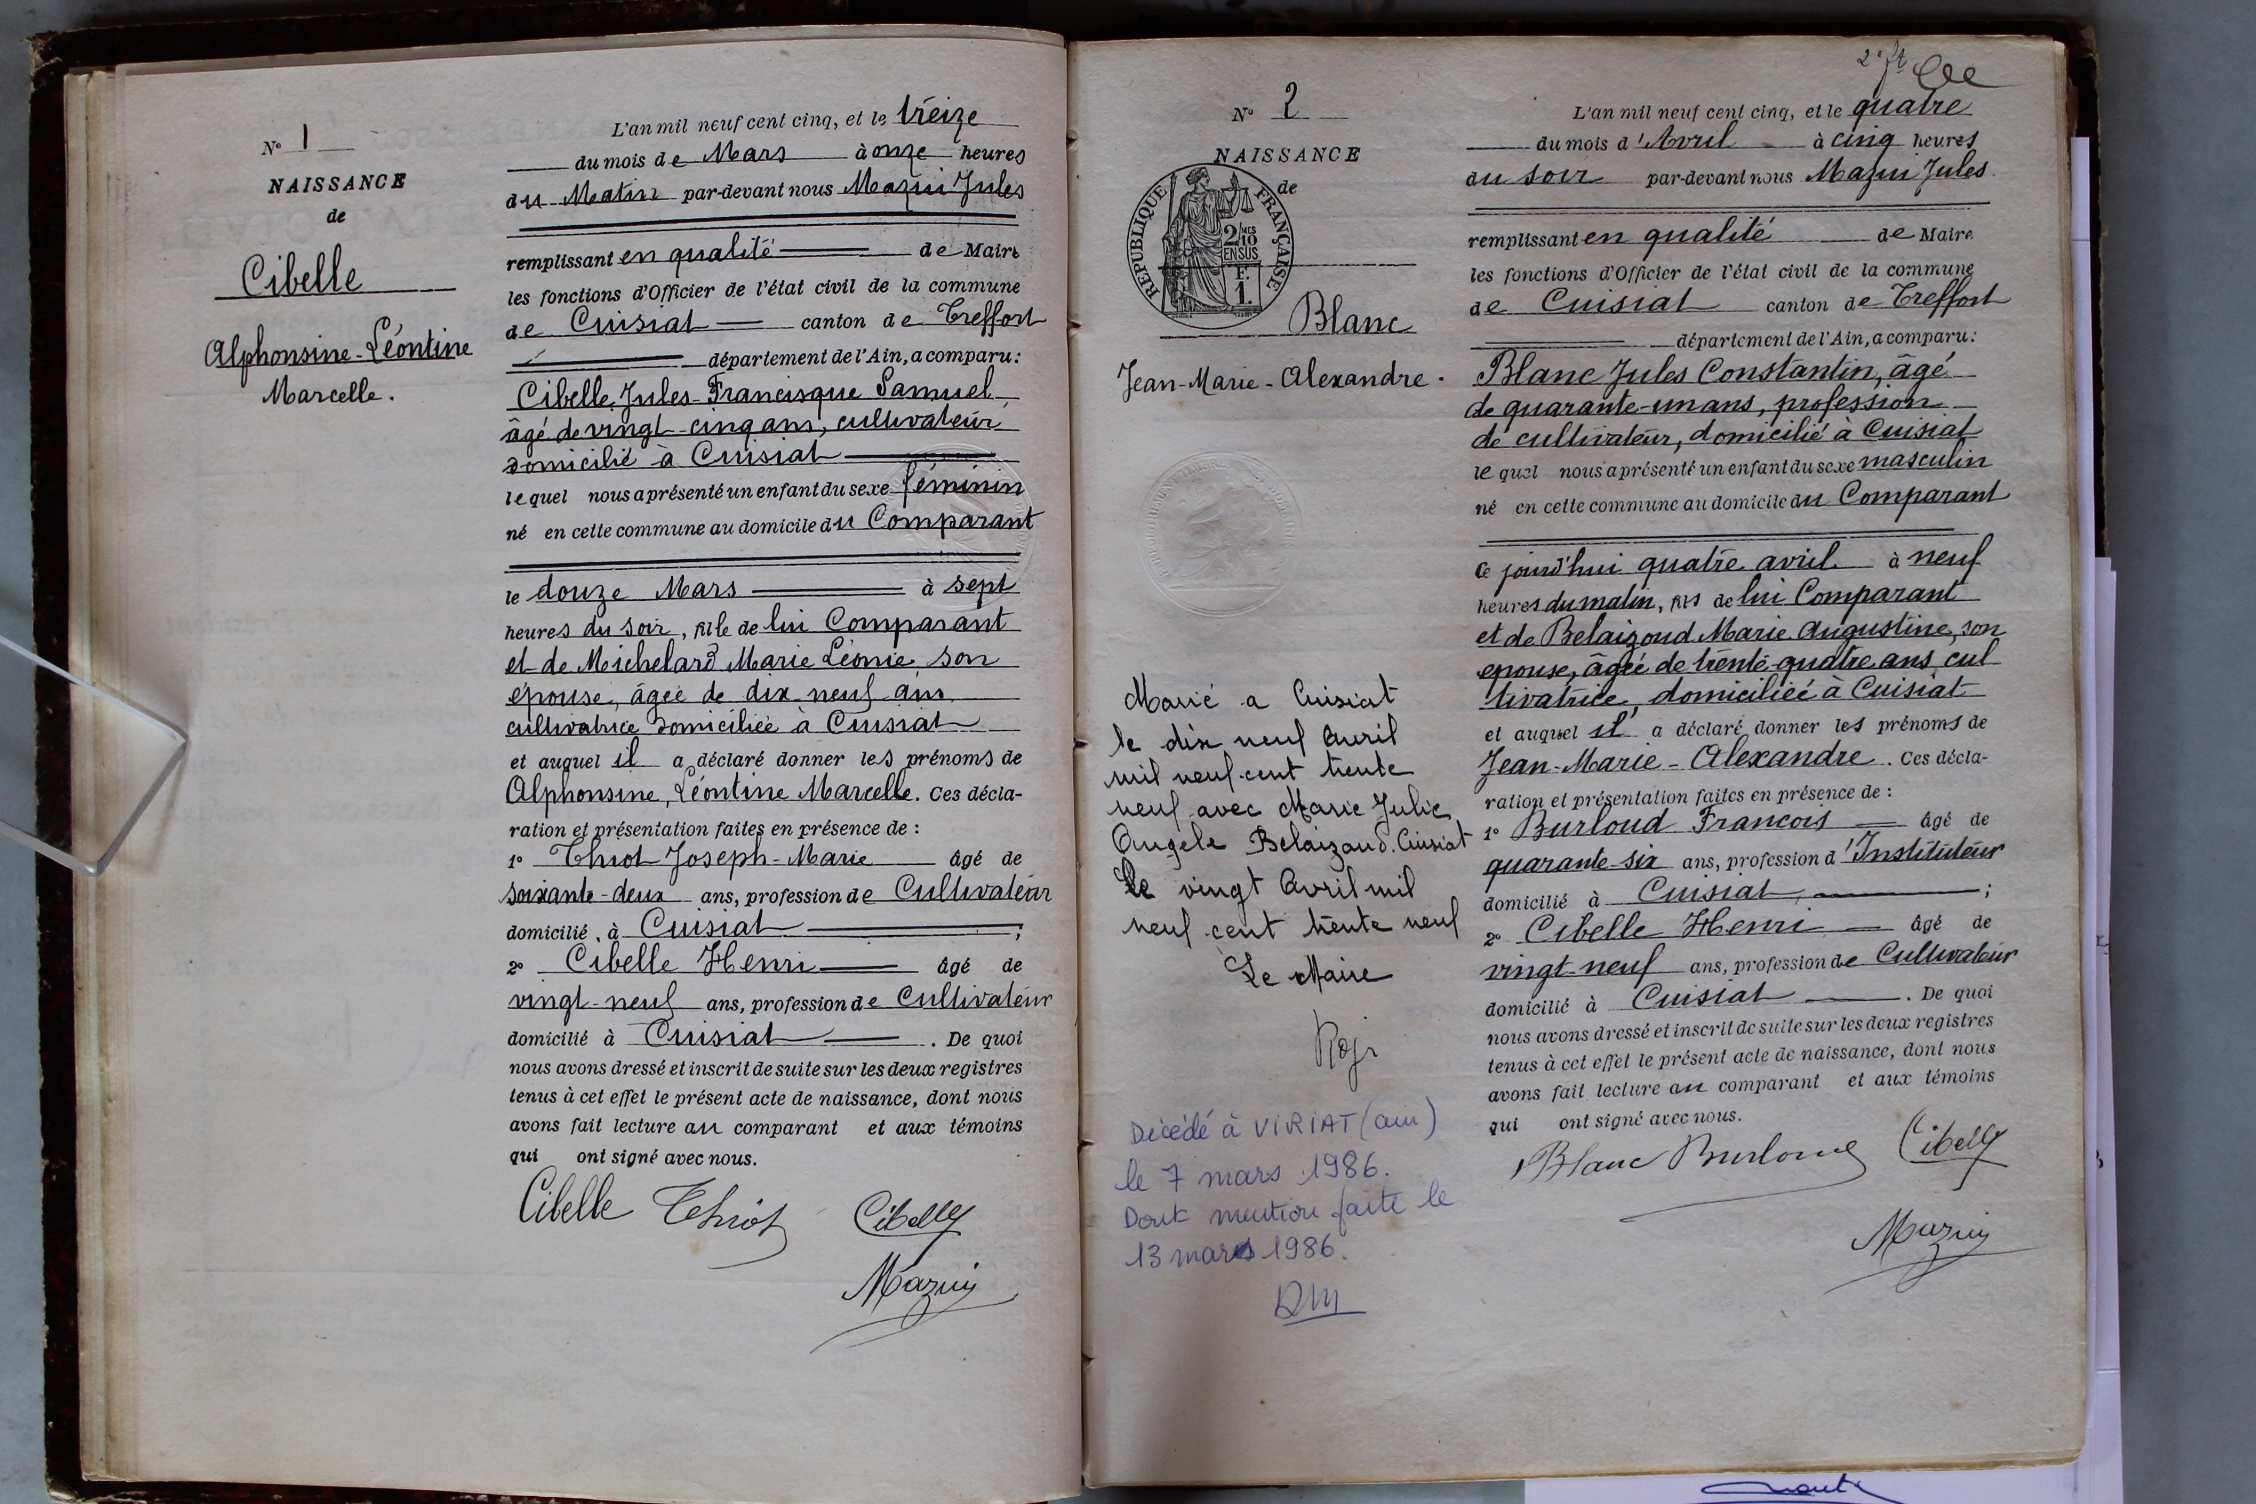 N° 1
NAISSANCE
de
Cibelle
Alphonsine-Léontine
Marcelle.
L'an mil neuf cent cinq, et le treize
du mois de Mars à onze heures
du Matin par-devant nous Mazui Jules
remplissant en qualité de Maire
les fonctions d'Officier de l'état civil de la commune
de Cuisiat canton de Treffort
département de l'Ain, a comparu :
Cibelle, Jules-Francisque Samuel
âgé de vingt-cinq ans, cultivateur
domicilié à Cuisiat
lequel nous a présenté un enfant du sexe féminin
né en cette commune au domicile du Comparant
le douze Mars à sept
heures du soir, fille de lui Comparant
et de Michelard Marie Léonie son
épouse, âgée de dix neuf ans
cultivatrice domiciliée à Cuisiat
et auquel il a déclaré donner les prénoms de
Alphonsine, Léontine Marcelle. Ces décla-
ration et présentation faites en présence de :
1° Thiot Joseph-Marie âgé de
soixante-deux ans, profession de Cultivateur
domicilié à Cuisiat ;
2° Cibelle Henri âgé de
vingt-neuf ans, profession de Cultivateur
domicilié à Cuisiat . De quoi
nous avons dressé et inscrit de suite sur les deux registres
tenus à cet effet le présent acte de naissance, dont nous
avons fait lecture au comparant et aux témoins
qui ont signé avec nous.
Cibelle Thiot Cibelle
Mazui
N° 2
NAISSANCE
de
RÉPUBLIQUE FRANÇAISE
2/10
EN SUS
F.
1.
Blanc
Jean-Marie-Alexandre.
Marié a Cuisiat
le dix neuf Avril
mil neuf-cent trente
neuf avec Marie Julie
Angèle Belaizoud. Cuisiat
Le vingt Avril mil
neuf cent trente neuf
Le Maire
Décédé à VIRIAT (ain)
le 7 mars 1986.
Dont mention faite le
13 mars 1986.
L'an mil neuf cent cinq, et le quatre
du mois d'Avril à cinq heures
du soir par-devant nous Mazui Jules
remplissant en qualité de Maire
les fonctions d'Officier de l'état civil de la commune
de Cuisiat canton de Treffort
département de l'Ain, a comparu :
Blanc Jules Constantin, âgé
de quarante-un ans, profession
de cultivateur, domicilié à Cuisiat
lequel nous a présenté un enfant du sexe masculin
né en cette commune au domicile du Comparant
ce jourd'hui quatre avril à neuf
heures du matin, fils de lui Comparant
et de Belaizoud Marie Augustine, son
epouse, âgée de trente-quatre ans, cul
tivatrice, domiciliée à Cuisiat
et auquel il a déclaré donner les prénoms de
Jean-Marie-Alexandre. Ces décla-
ration et présentation faites en présence de :
1° Burloud Francois âgé de
quarante-six ans, profession d'Instituteur
domicilié à Cuisiat, ;
2° Cibelle Henri âgé de
vingt-neuf ans, profession de Cultivateur
domicilié à Cuisiat . De quoi
nous avons dressé et inscrit de suite sur les deux registres
tenus à cet effet le présent acte de naissance, dont nous
avons fait lecture au comparant et aux témoins
qui ont signé avec nous.
Blanc Burloud Cibelle
Mazui